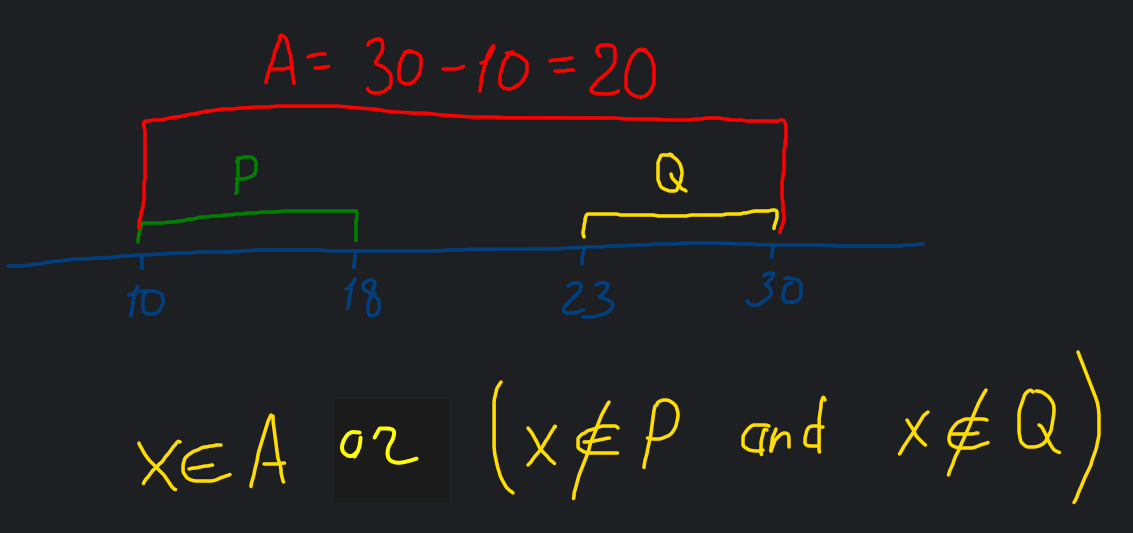 A = 30 - 10 = 20
P Q
10 18 23 30
x∈A or (x∉P and x∉Q)